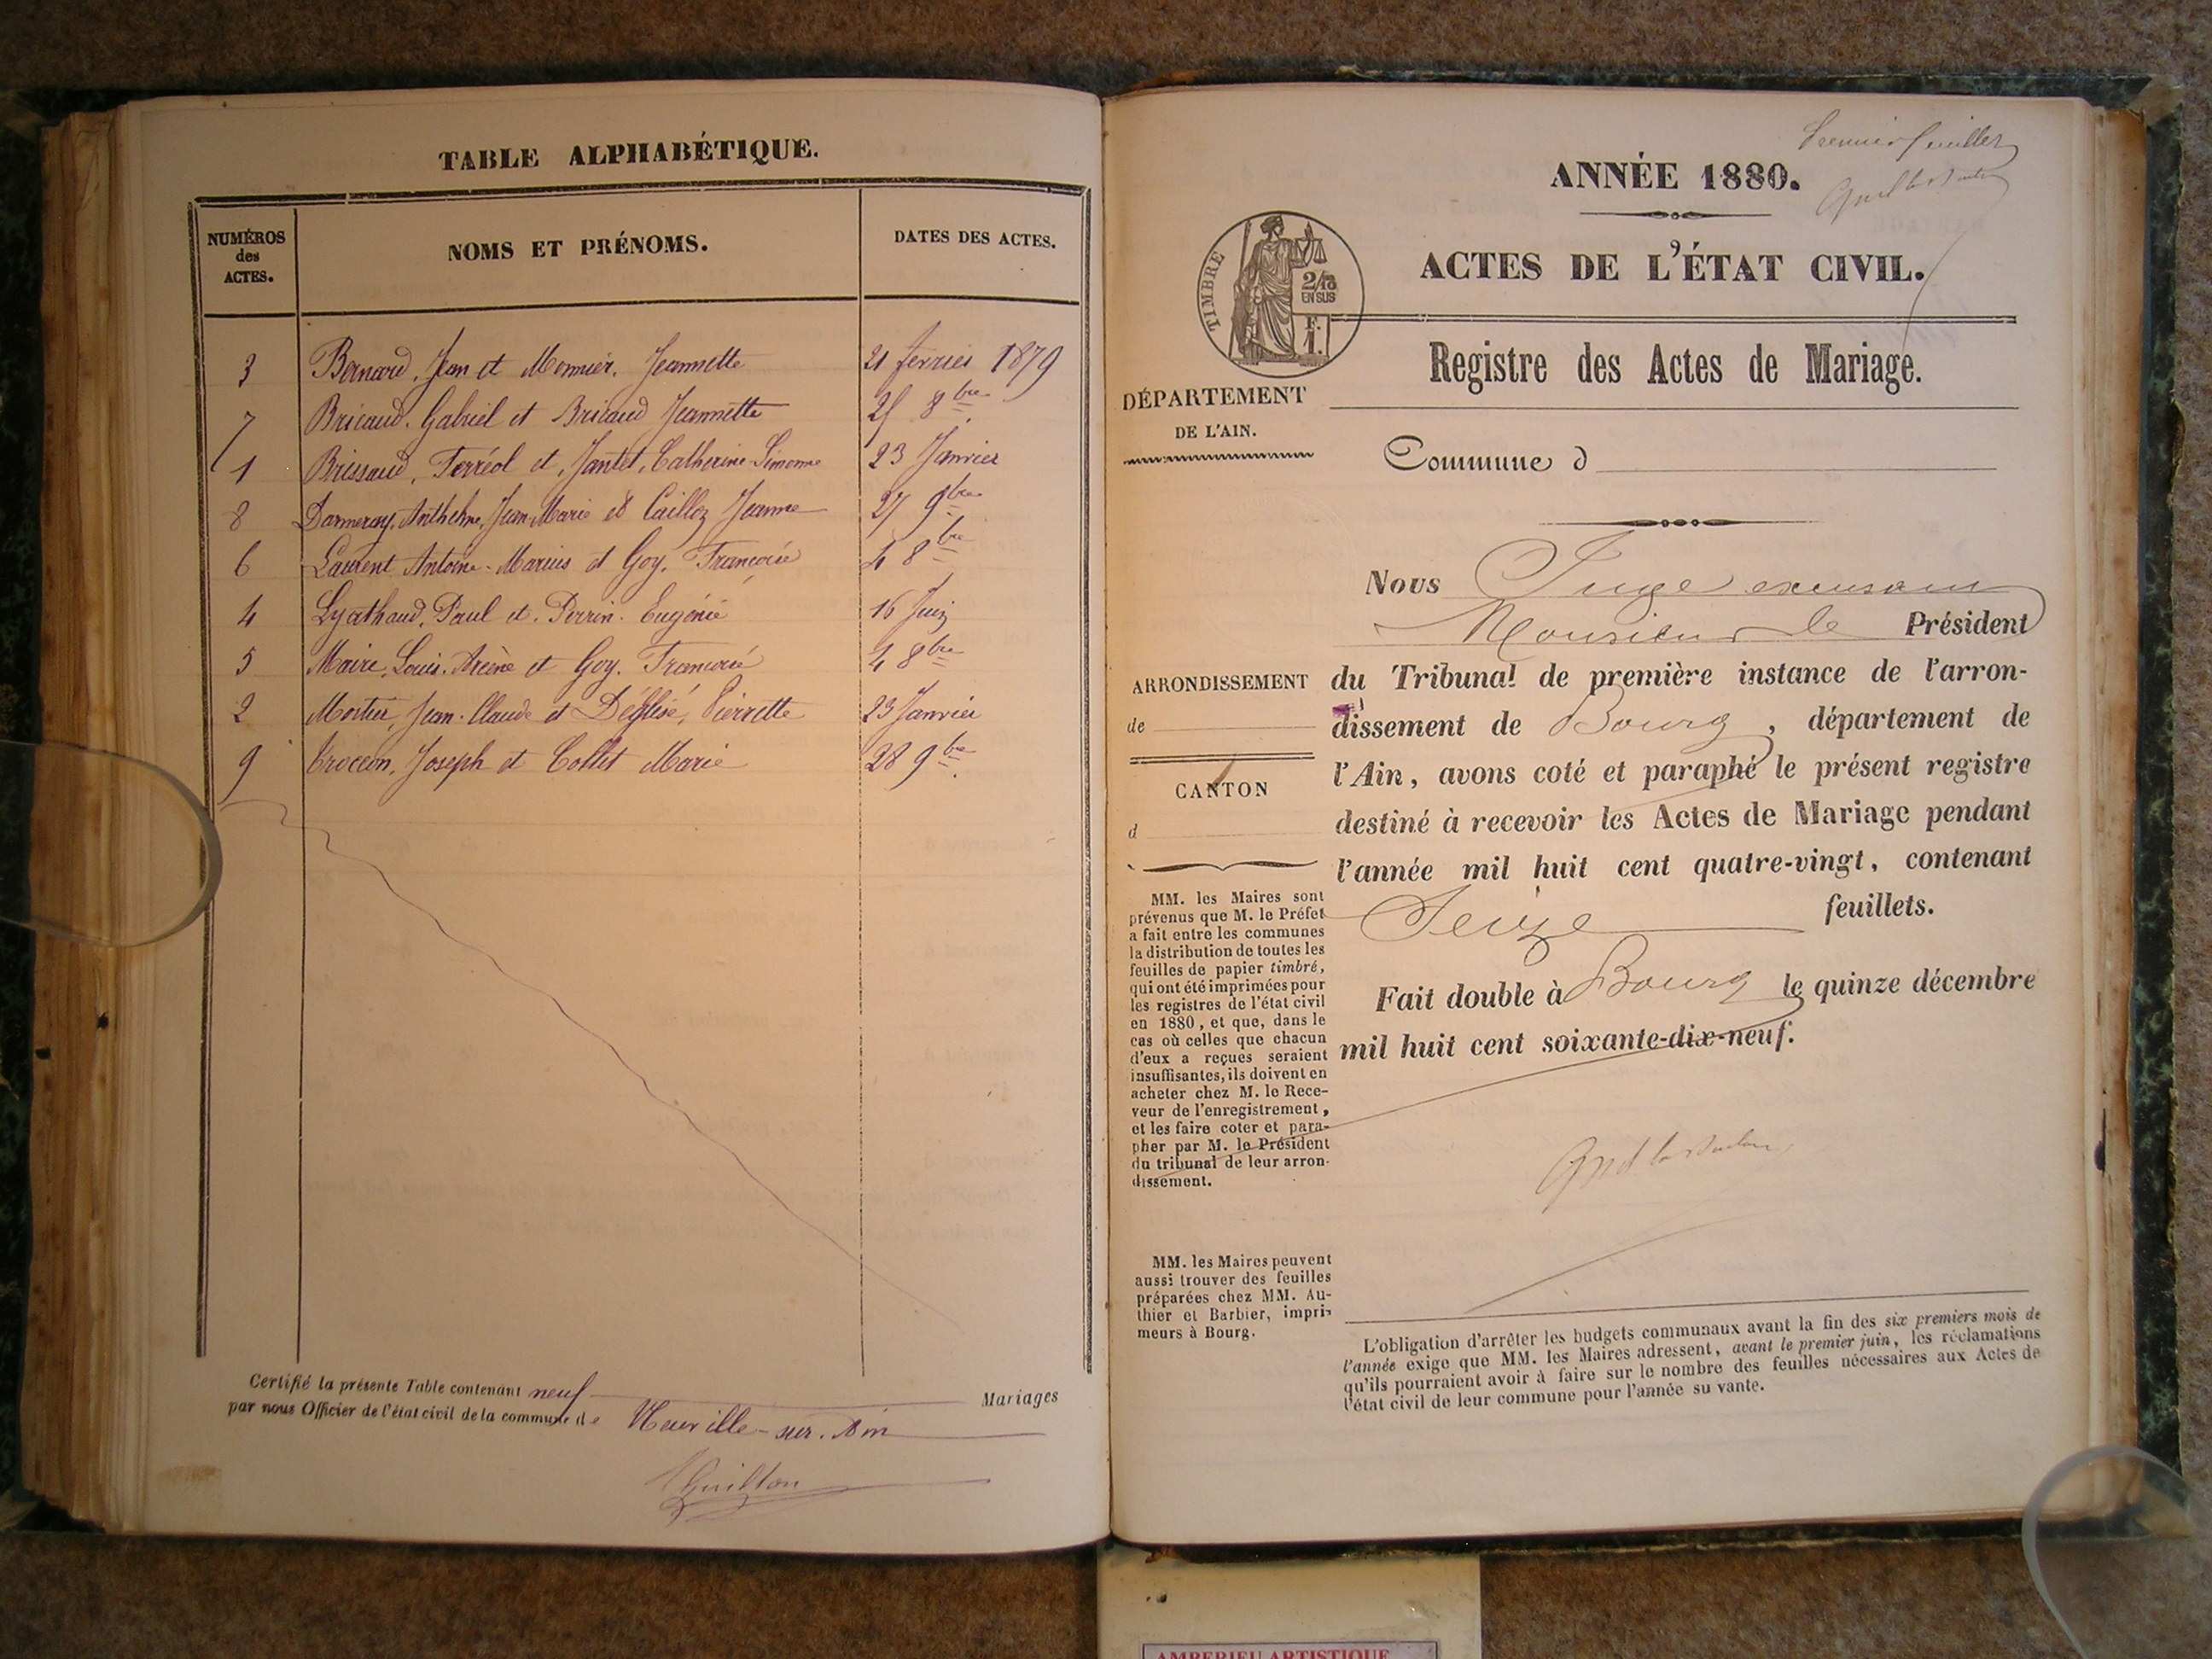 TABLE ALPHABÉTIQUE.
NUMÉROS des ACTES.
NOMS ET PRÉNOMS.
DATES DES ACTES.
3 Bernard, Jean et Monnier, Jeannette 21 février 1879
7 Bricaud, Gabriel et Bricaud Jeannette 25 8bre
1 Brissaud, Ferréol et Jantet, Catherine-Simonne 23 Janvier
8 Anthelme, Jean-Marie et Jeanne 27 9bre
6 Laurent Antoine-Marius et Goy, Françoise 4 8bre
4 Lyathaud, Paul et Perrin Eugénie 16 Juin
5 Maire, Louis-Arcène et Goy, Françoise 4 8bre
2 Mortier, Jean-Claude et Pierrette 23 Janvier
9 Joseph et Collet Marie 28 9bre
Certifié la présente Table contenant neuf Mariages
par nous Officier de l'état civil de la commune de Neuville-sur-Ain
Premier feuillet
ANNÉE 1880.
ACTES DE L'ÉTAT CIVIL.
TIMBRE
2/10
EN SUS
F.
1.
Registre des Actes de Mariage.
DÉPARTEMENT
DE L'AIN.
Commune d
Nous Juge excusant
Monsieur le Président
ARRONDISSEMENT
de
CANTON
d
du Tribunal de première instance de l'arron-
dissement de Bourg, département de
l'Ain, avons coté et paraphé le présent registre
destiné à recevoir les Actes de Mariage pendant
l'année mil huit cent quatre-vingt, contenant
Seize feuillets.
Fait double à Bourg le quinze décembre
mil huit cent soixante-dix-neuf.
MM. les Maires sont
prévenus que M. le Préfet
a fait entre les communes
la distribution de toutes les
feuilles de papier timbré,
qui ont été imprimées pour
les registres de l'état civil
en 1880, et que, dans le
cas où celles que chacun
d'eux a reçues seraient
insuffisantes, ils doivent en
acheter chez M. le Rece-
veur de l'enregistrement,
et les faire coter et para-
pher par M. le Président
du tribunal de leur arron-
dissement.
MM. les Maires peuvent
aussi trouver des feuilles
préparées chez MM. Au-
thier et Barbier, impri-
meurs à Bourg.
L'obligation d'arrêter les budgets communaux avant la fin des six premiers mois de
l'année exige que MM. les Maires adressent, avant le premier juin, les réclamations
qu'ils pourraient avoir à faire sur le nombre des feuilles nécessaires aux Actes de
l'état civil de leur commune pour l'année su vante.
AMBERIEU ARTISTIQUE